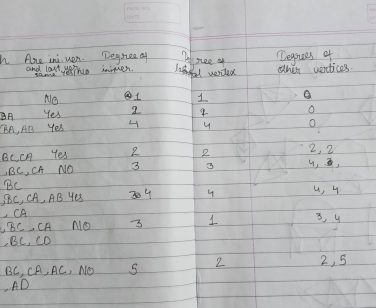 Are ini. ver. Degree of Degree of Degrees of
and last ver. iniver. vertex other vertices.
same Yes/No
No 1 1 0
BA Yes 2 2 0
BA, AB Yes 4 4 0
BC, CA Yes 2 2 2, 2
, BC, CA No 3 3 4, 3,
BC
, BC, CA, AB Yes 4 4 4, 4
, CA
, BC, CA No 3 1 3, 4
, BC, CD
BC, CA, AC, No 5 2 2, 5
, AD